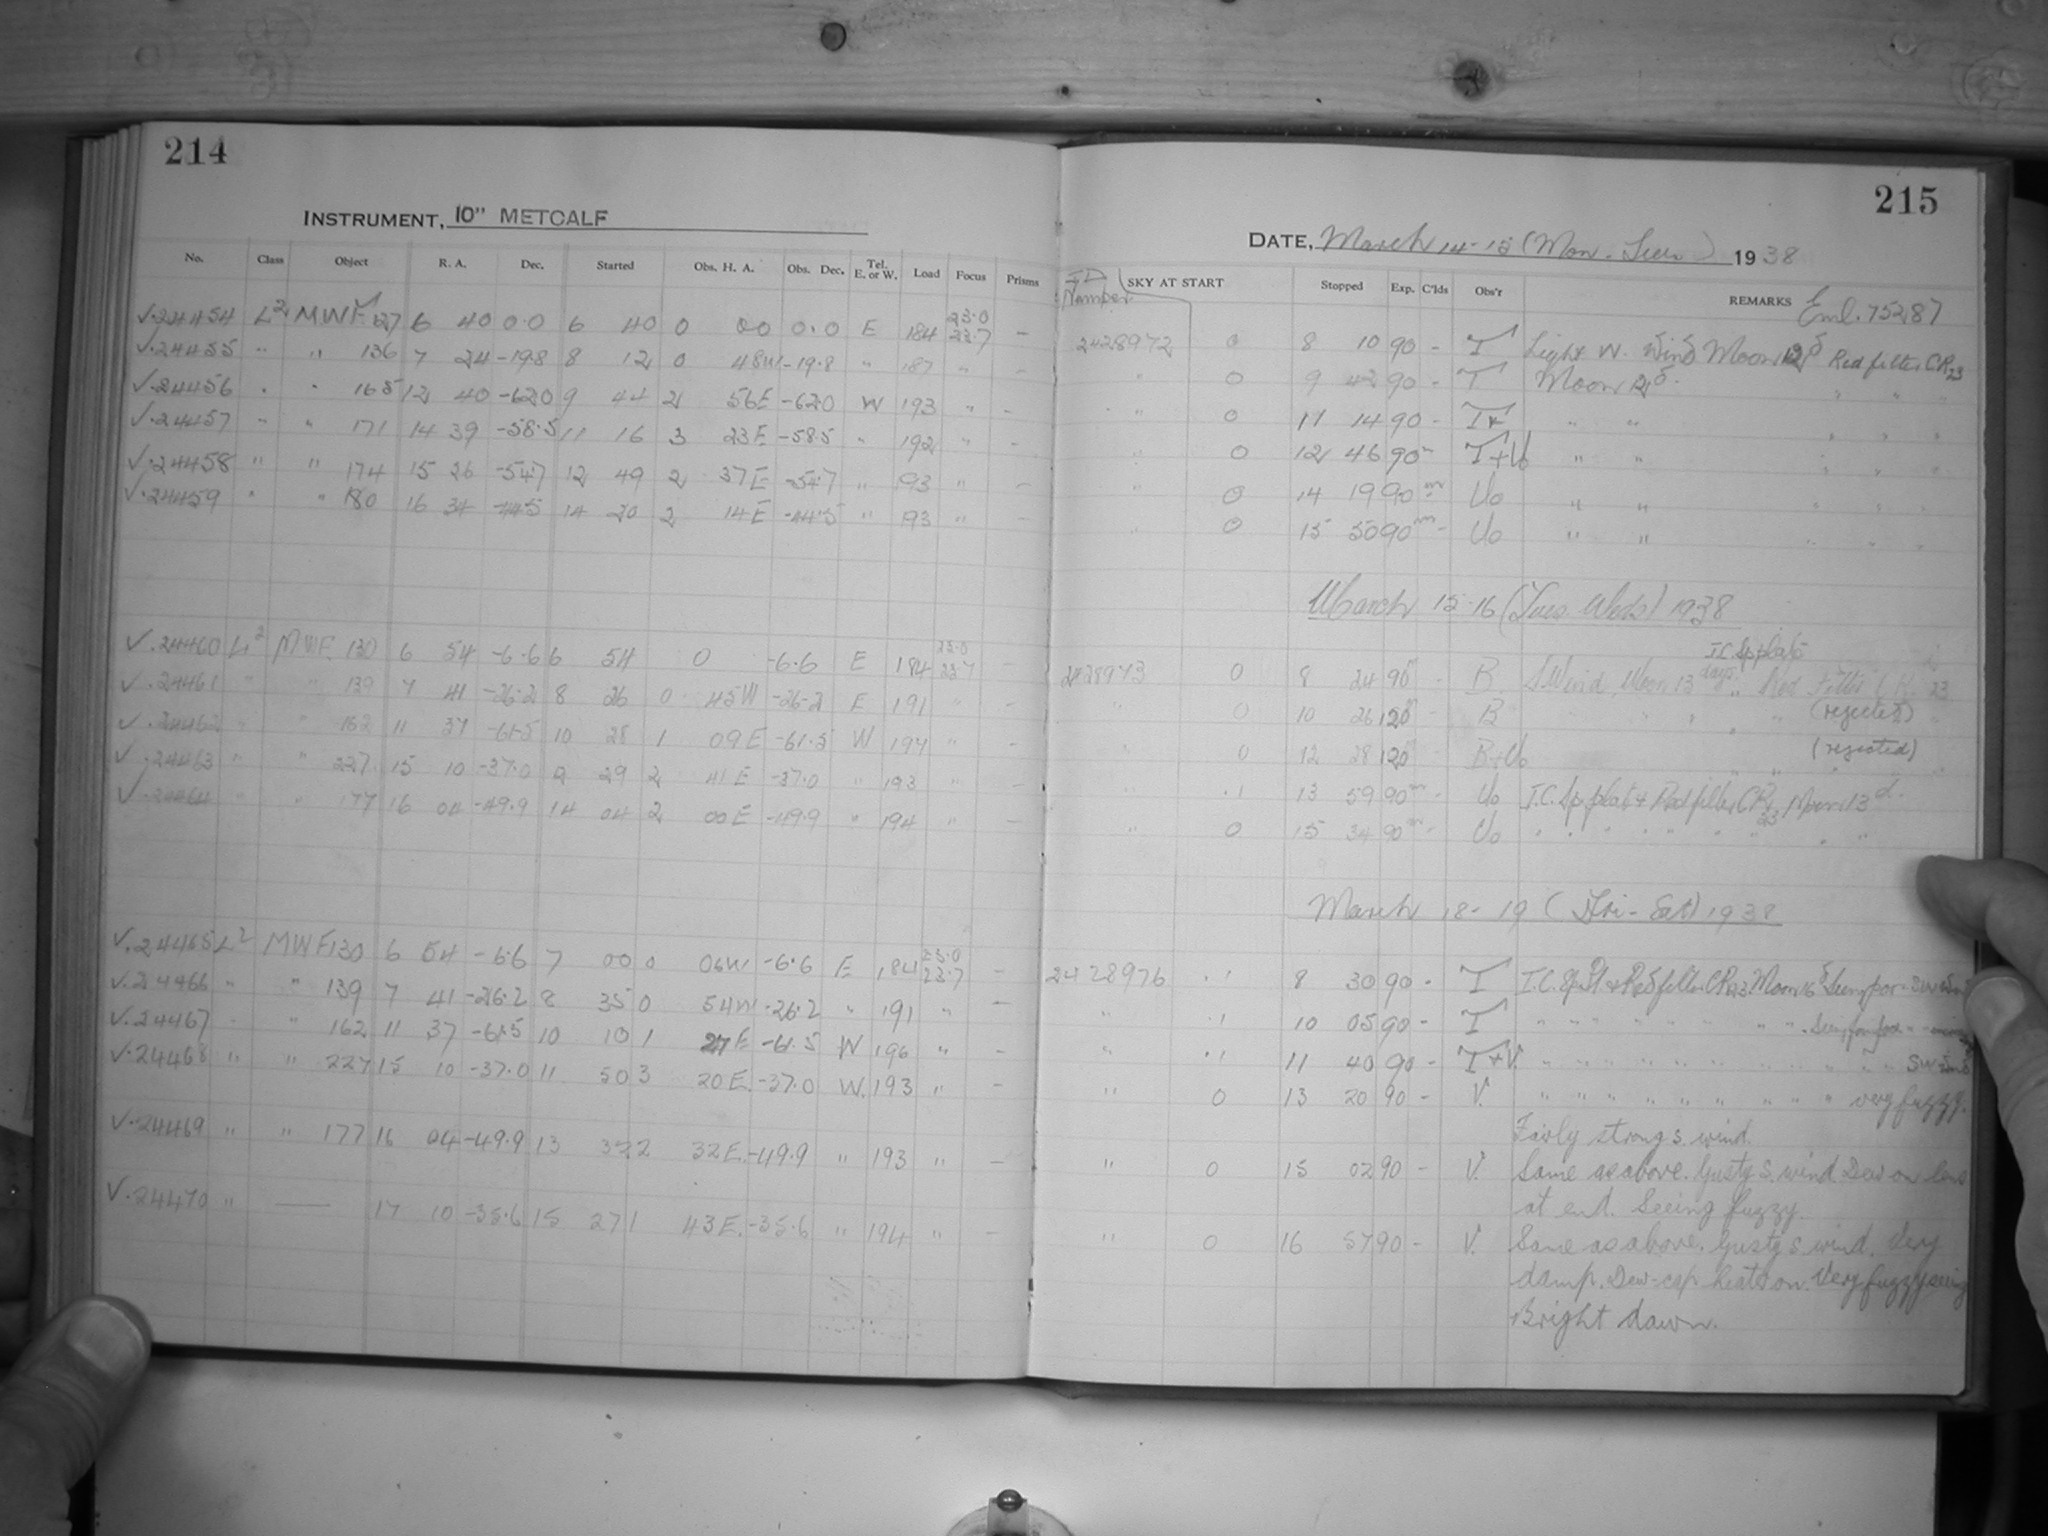 214
INSTRUMENT, 10" METCALF
No. Class Object R. A. Dec. Started Obs. H. A. Obs. Dec. Tel. E. or W. Load Focus Prisms
V.24454 L2 MWF 127 6 40 0.0 6 40 0 00 0.0 E 184 23.0 23.7 –
V.24455 " " 136 7 24 -19.8 8 12 0 48W -19.8 " 187 " –
V.24456 " " 165 12 40 -62.0 9 44 2 56E -62.0 W 193 " –
V.24457 " " 171 14 39 -58.5 11 16 3 23E -58.5 " 192 " –
V.24458 " " 174 15 26 -54.7 12 49 2 37E -54.7 " 193 " –
V.24459 " " 180 16 34 -44.5 14 20 2 14E -44.5 " 193 " –
V.24460 L2 MWF. 130 6 54 -6.6 6 54 0 -6.6 E 184 23.0 23.7 –
V.24461 " " 139 7 41 -26.2 8 26 0 45W -26.2 E 191 " –
V.24462 " " 162 11 37 -61.5 10 28 1 09E -61.5 W 194 " –
V.24463 " " 227 15 10 -37.0 12 29 2 41E -37.0 " 193 " –
V.24464 " " 177 16 04 -49.9 14 04 2 00E -49.9 " 194 " –
V.24465 L2 MWF 130 6 54 -6.6 7 00 0 06W -6.6 E 184 23.0 23.7 –
V.24466 " " 139 7 41 -26.2 8 35 0 54W -26.2 " 191 " –
V.24467 " " 162 11 37 -61.5 10 10 1 27E -61.5 W 196 " –
V.24468 " " 227 15 10 -37.0 11 50 3 20E. -37.0 W. 193 " –
V.24469 " " 177 16 04 -49.9 13 32 2 32E. -49.9 " 193 " –
V.24470 " — 17 10 -35.6 15 27 1 43E. -35.6 " 194 " –
215
DATE, March 14-15 (Mon.-Tues) 1938
J D Number SKY AT START Stopped Exp. C'lds Obs'r REMARKS Eml. 75287
2428972 0 8 10 90 - T Light W. Wind Moon 12d Red filter CR23
" 0 9 42 90 - T Moon 12d. " " "
" 0 11 14 90 - " " " " "
" 0 12 46 90 - T+Uo " " " " "
" 0 14 19 90m - Uo " " " " "
" 0 15 50 90m - Uo " " " " "
March 15-16 (Tues. Weds) 1938
I.C. Sp plate
2428973 0 8 24 90m - B. S Wind, Moon 13 days, Red Filter CR. 23
" 0 10 26 120m - B " " " (rejected)
" 0 12 28 120m B+Uo " " (rejected)
" .1 13 59 90m - Uo I.C. Sp. plate + Red filter CR23 Moon 13d.
" 0 15 34 90m - Uo " " " " " " "
March 18-19 (Fri-Sat) 1938
2428976 .1 8 30 90 - T I.C. Sp. Pl. + Red filter CR23. Moon 16d Seeing poor SW Wind
" .1 10 05 90 - T " " " " " " "
" .1 11 40 90 - T+V. " " " " " " " SW Wind
" 0 13 20 90 - V. " " " " " " " very fuzzy.
Fairly strong S. wind.
" 0 15 02 90 - V. Same as above. Gusty S. wind. Dew on lens
at end. Seeing fuzzy.
" 0 16 57 90 - V. Same as above. Gusty S. wind. Very
damp. Dew-cap heat on. Very fuzzy seeing
Bright dawn.